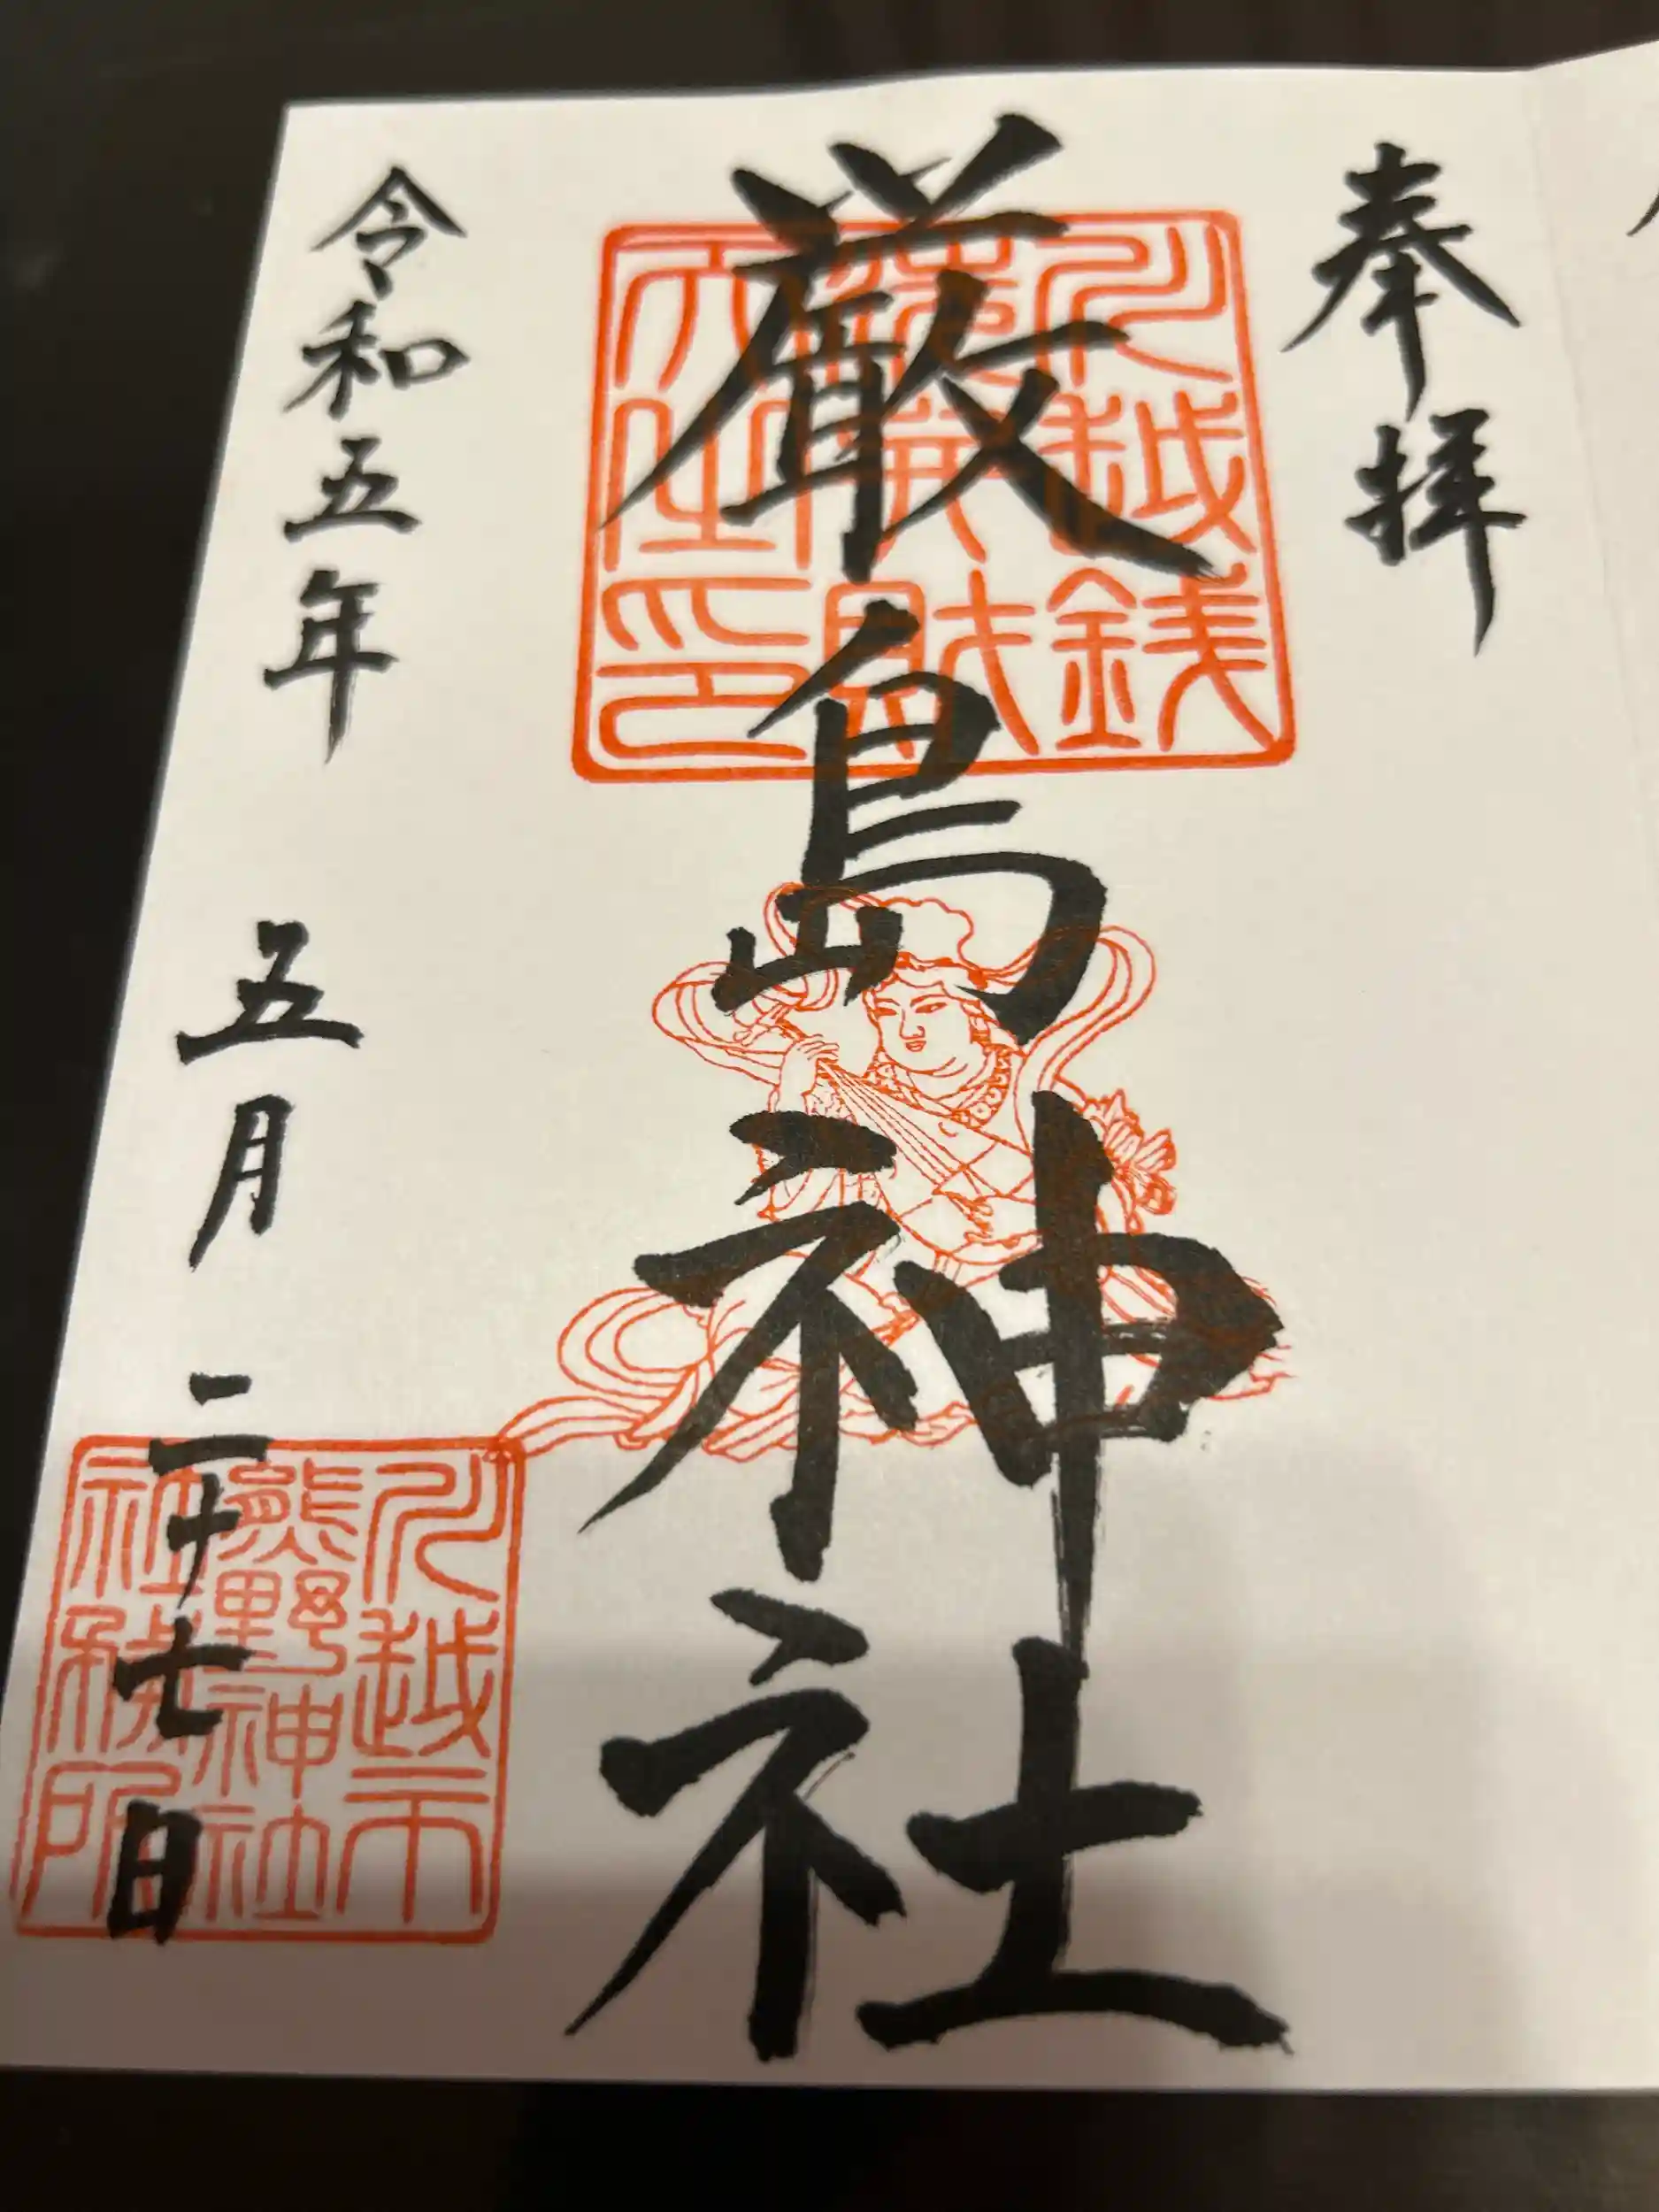 奉拝
厳島神社
川越
銭洗弁財
天社印
令和五年 五月 二十七日
川越市
熊野神社
社務所